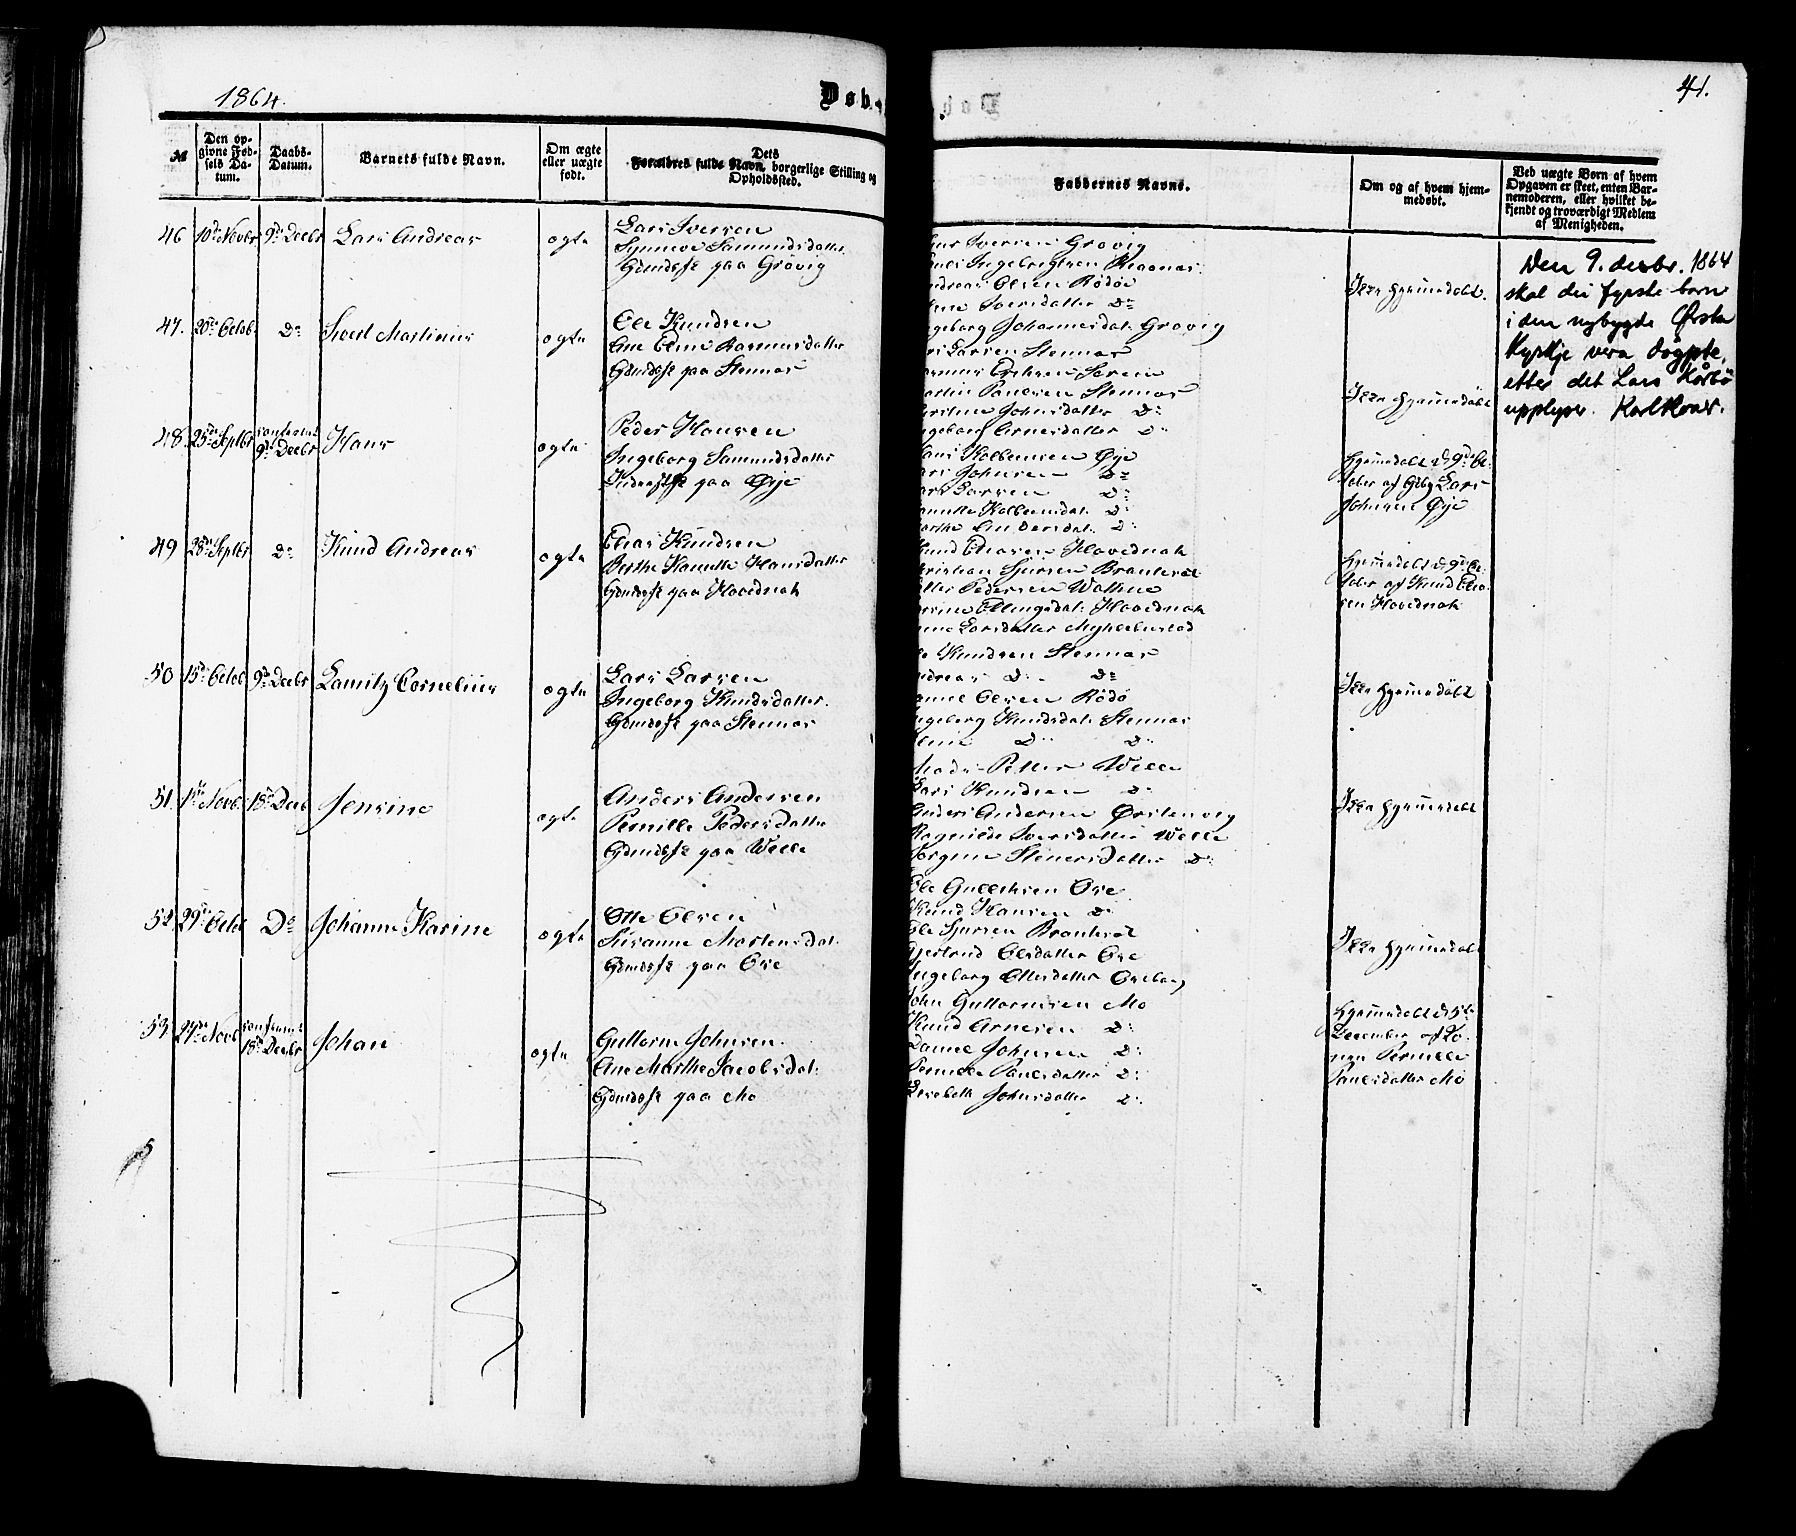 1864.
Døb
41.
№
Den op-
givne Fød-
sels Da-
tum.
Daabs-
Datum.
Barnets fulde Navn.
Om ægte
eller uægte
født.
Dets
Forældres fulde Navn, borgerlige Stilling og
Opholdssted.
Faddernes Navne.
Om og af hvem hjem-
medøbt.
Ved uægte Børn af hvem
Opgaven er skeet, enten Bar-
nemoderen, eller hvilket be-
kjendt og troværdigt Medlem
af Menigheden.
46 10de Novbr 9de Decbr Lars Andreas ægte
Lars Iversen
Synneve Samundsdatter
Gdmdsf paa Grøvig
Iversen Grøvig
Ingebrigtsen
Olsen Rødø
Iversdatter Do
Johannesdat. Grøvig
Ikke hjemmedøbt.
Den 9. desbr. 1864
skal dei fyrste born
i den nybygde Ørsta
Kyrkje vera døypte,
etter det Lars
upplyser.
47. 20de Octob. Do Martinus ægte
Ole Knudsen
Ane Oline Rasmusdatter
Gdmdsf paa Stennes
Larsen Stennes
Paulsen Stennes
Johnsdatter Do
Arnesdatter Do
Ikke hjemmedøbt
48. 25de Septbr 9de Decbr Hans ægte
Peder Hansen
Ingeborg Samundsdatter
paa Øye
Kolbensen Øye
Johnsen Do
Larsen Do
Kolbensdat. Do
Andersdat. Do
hjemmedøbt d. 9de Oc-
tober af Gbr Lars
Johnsen Øye
49 28de Septbr Do Knud Andreas ægte
Elias Knudsen
Berthe Hansdatter
Gdmdsf paa Hovednak
Knud Eliasen Hovednak
Kristian Sjursen
Pedersen Wathne
Ellingsdat. Hovednak
Larsdatter Myklebustad
hjemmedøbt d. 9de Oc-
tober af Knud Elia-
sen Hovednak
50 15de Octob 9de Decbr Cornelius ægte
Lars Larsen
Ingeborg Knudsdatter.
Gdmdsf paa Stennes
Knudsen Stennes
Do Do
Olsen Rødø
Knudsdat. Stennes
Do Do
Ikke hjemmedøbt
51. 1ste Novb. 18de Decb Jensine ægte
Anders Andersen
Pernille Pedersdatter
Gdmdsf paa Welle
Petter Welle
Lars Knudsen Do
Anders Andersen Ørstenvig
Iversdatter Welle
Stenersdatter Do
Ikke hjemmedøbt
52. 29de Octob Do Johanne Karine ægte
Otte Olsen
Susanne Mortensdat.
Gdmdsf paa Ose
Ole Gulliksen Ose
Knud Hansen Do
Ole Sjursen
Gjertrud Olsdatter Ose
Ingeborg Ottesdatter
Ikke hjemmedøbt
53. 27de Novb 18de Decbr Johan ægte
Guttorm Johnsen.
Ane Marthe Jacobsdat.
Gdmdsf paa Mo
John Guttormsen Mo
Knud Arnesen Do
Daniel Johnsen Do
Pernille Paulsdatter Do
Lisabeth Johnsdatter Do
hjemmedøbt d. 5te
December af Ko-
nen Pernille
Paulsdatter Mo